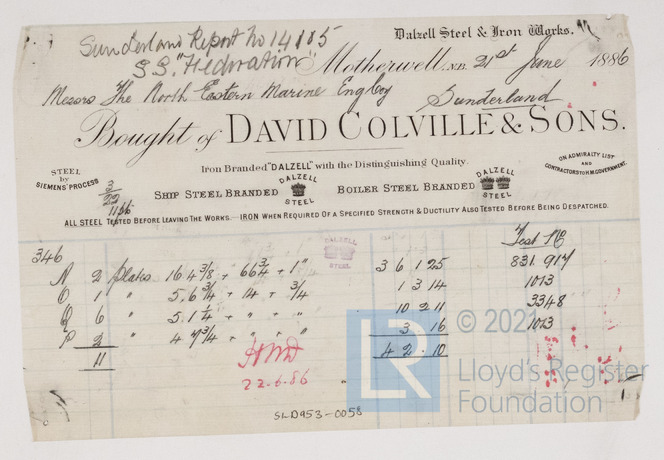 Sunderland Report No 14185
S.S. "Federation"
Dalzell Steel & Iron Works.
Motherwell, N.B. 21st June 1886
Messrs The North Eastern Marine Eng Coy Sunderland
Bought of DAVID COLVILLE & SONS.
STEEL
by
SIEMENS' PROCESS
Iron Branded "DALZELL" with the Distinguishing Quality.
ON ADMIRALTY LIST
AND
CONTRACTORS TO H.M. GOVERNMENT.
SHIP STEEL BRANDED DALZELL STEEL BOILER STEEL BRANDED DALZELL STEEL
ALL STEEL TESTED BEFORE LEAVING THE WORKS.—IRON WHEN REQUIRED OF A SPECIFIED STRENGTH & DUCTILITY ALSO TESTED BEFORE BEING DESPATCHED.
DALZELL
STEEL
Test No
346
N 2 plates 16 4 3/8 66 3/4 1" 3 6 1 25 831. 917
O 1 " 5. 6 3/4 14 3/4 1 3 14 1013
Q 6 " 5. 1 1/4 " " 10 2 11 3348
P 2 " 4 7 3/4 " " 3 16 1013
11 4 2 . 10
22.6.86
SLD953-0058
© 2021
LR
Lloyd's Register
Foundation